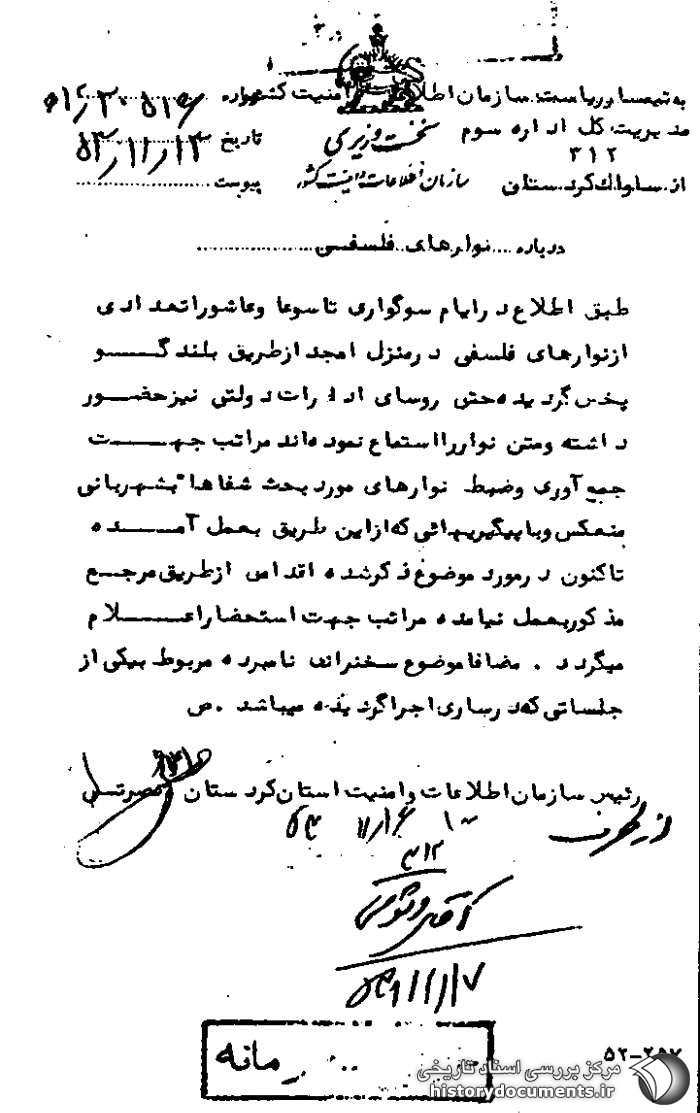 به تیمسار ریاست سازمان اطلاعات و امنیت کشور شماره
مدیریت کل اداره سوم ۳۱۲ نخست وزیری تاریخ ۵۳/۱۱/۱۳
از ساواک کردستان سازمان اطلاعات و امنیت کشور پیوست
درباره نوارهای فلسفی
طبق اطلاع در ایام سوگواری تاسوعا و عاشورا تعدادی
از نوارهای فلسفی در منزل امجد از طریق بلندگو
پخش گردیده حتی روسای ادارات دولتی نیز حضور
داشته و متن نوار را استماع نموده اند مراتب جهت
جمع آوری وضبط نوارهای مورد بحث شفاها" بشهربانی
منعکس و با پیگیریهائی که از این طریق بعمل آمده
تاکنون در مورد موضوع ذکر شده اقدامی از طریق مرجع
مذکور بعمل نیامده مراتب جهت استحضار اعلام
میگردد . مضافا موضوع سخنرانی نامبرده مربوط بیکی از
جلساتی که در ساری اجرا گردیده میباشد . ص
رئیس سازمان اطلاعات و امنیت استان کردستان
از طرف
۳۱۲
آقای
محرمانه
۵۲-۲۵۷
مرکز بررسی اسناد تاریخی
historydocuments.ir